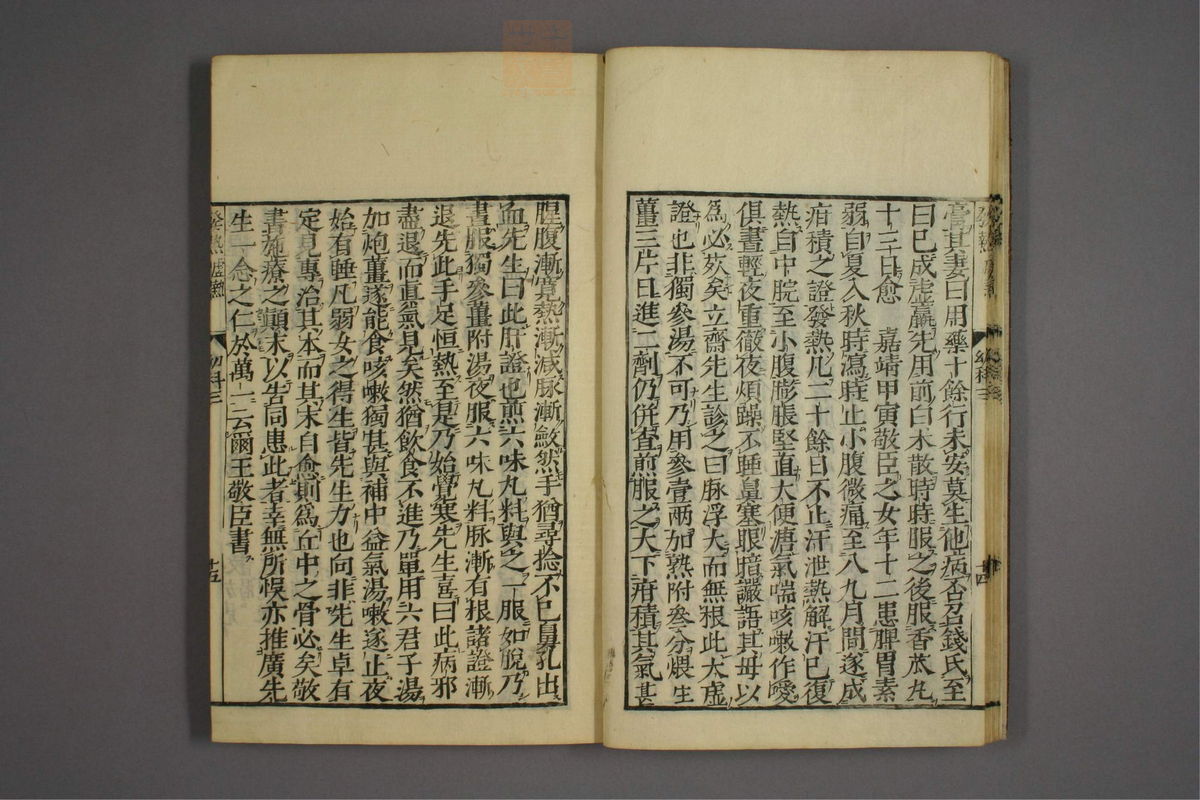 嘗其妻曰用藥十餘行未安莫生他病否召錢氏至
曰已成虛羸先用前白术散時時服之後服香瓜丸
十三日愈　嘉靖甲寅敬臣之女年十二患脾胃素
弱自夏入秋時瀉時止小腹微痛至八九月間遂成
疳積之證發熱凡二十餘日不止汗泄熱解汗已復
熱自中脘至小腹膨脹堅直大便溏氣喘咳嗽作嗳
俱晝輕夜重徹夜煩躁不睡鼻塞眼暗讝語其母以
爲必死矣立齋先生診之曰脉浮大而無根此大虛
證也非獨參湯不可乃用參壹兩加熟附叁分煨生
薑三片日進二劑仍併查煎服之大下疳積其氣甚
腥腹漸寬熱漸減脉漸斂然手猶尋捻不已鼻孔出
血先生曰此肝證也煎六味丸料與之一服如脫乃
晝服獨參薑附湯夜服六味丸料脉漸有根諸證漸
退先此手足恒熱至是乃始覺寒先生喜曰此病邪
盡退而真氣見矣然猶飲食不進乃單用六君子湯
加炮薑遂能食咳嗽獨甚與補中益氣湯嗽遂止夜
始有睡凡弱女之得生皆先生力也向非先生卓有
定見專治其本而其末自愈則爲丘中之骨必矣敬
書施療之顛末以告同患此者幸無所悞亦推廣先
生一念之仁於萬一云爾王敬臣書
發熱虛熱
幼科三
十五